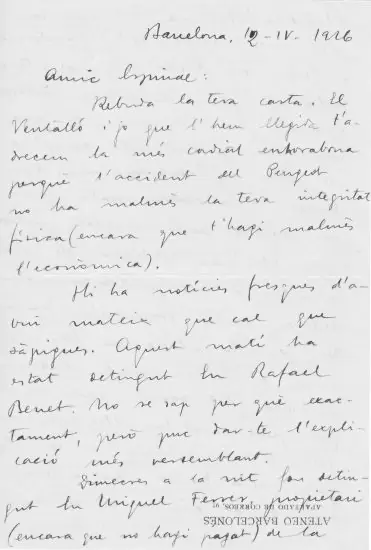 Barcelona, 12-IV-1926
Amic Espinal:
Rebuda la teva carta. El
Ventalló i jo que l'hem llegida t'a-
drecem la més cordial enhorabona
perquè l'accident del Peugeot
no ha malmès la teva integritat
física (encara que t'hagi malmès
l'econòmica).
Hi ha notícies fresques d'a-
vui mateix que cal que
sàpigues. Aquest matí ha
estat detingut En Rafael
Benet. No se sap per què exac-
tament, però puc dar-te l'expli-
cació més versemblant.
Dimecres a la nit fou detin-
gut En Miquel Ferrer, propietari
(encara que no hagi pagat) de la
ATENEO BARCELONÉS
APARTADO DE CORREOS, 91